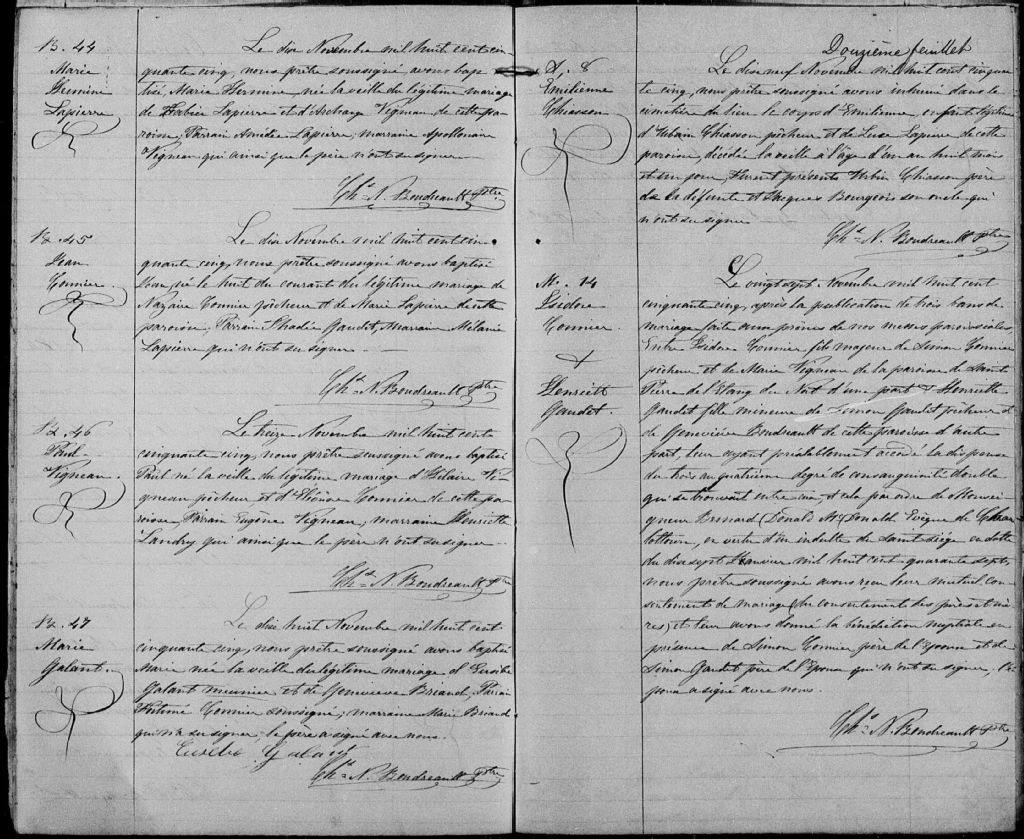 B. 44
Marie
Hermine
Lapierre
Le dix Novembre mil huit cent cin-
quante cinq, nous prêtre soussigné, avons bap-
tisé, Marie Hermine, née la veille du légitime mariage
de Fabien Lapierre et d'Archange Vigneau de cette pa-
roisse, Parrain Amédée Lapierre, marraine Apollonaire
Vigneau qui ainsi que le père n'ont su signer
Chs. N. Boudreault Ptre
B. 45
Jean
Cormier
Le dix Novembre mil huit cent cin-
quante cinq, nous prêtre soussigné avons baptisé
Jean, né le huit du courant du légitime mariage de
Nazaire Cormier pêcheur et de Marie Lapierre de cette
paroisse, Parrain Thadée Gaudet, Marraine Mélanie
Lapierre qui n'ont su signer
Chs. N. Boudreault Ptre
B. 46
Paul
Vigneau
Le treize Novembre mil huit cent
cinquante cinq, nous prêtre soussigné avons baptisé
Paul né la veille du légitime mariage d'Hélaire Vi-
gneau pêcheur et d' Cormier de cette pa-
roisse, Parrain Eugène Vigneau, marraine Henriette
Landry qui ainsi que le père n'ont su signer
Chs. N. Boudreault Ptre
B. 47
Marie
Galant
Le dix huit Novembre mil huit cent
cinquante cinq, nous prêtre soussigné avons baptisé
Marie né la veille du légitime mariage d'Eusèbe
Galant meunier et de Geneviève Briand, Parrain
Cormier soussigné, marraine Marie Briand
qui n'a su signer. le père a signé avec nous.
Eusèbe Galant
Chs. N. Boudreault Ptre
Douzième feuillet
S. 8
Emilienne
Chiasson
Le dix neuf Novembre mil huit cent cinquan-
te cinq, nous prêtre soussigné avons inhumé dans le
cimetière du lieu le corps d'Emilienne, enfant légitime
d'Urbain Chiasson pêcheur et de Luce Lapierre de cette
paroisse, décédée la veille à l'âge d'un an huit mois
et un jour, Furent présents Urbin Chiasson père
de la défunte et Jacques Bourgeois son oncle qui
n'ont su signer
Chs. N. Boudreault Ptre
M. 14
Isidore
Cormier
+
Henriett
Gaudet
Le vingt sept Novembre mil huit cent
cinquante cinq, après la publication de trois bans de
mariage faite aux prônes de nos messes paroissiales
Entre Isidore Cormier fils majeur de Simon Cormier
pêcheur et de Marie Vigneau de la paroisse de Saint
Pierre de l'Etang du Nord d'une part & Henriette
Gaudet fille mineure de Simon Gaudet pêcheur et
de Geneviève Boudreault de cette paroisse d'autre
part, leur ayant préalablement accordé la dispense
du trois au quatrième degré de consanguinité double
qui se trouvait entre eux et cela par ordre de Monsei-
gneur Bernard Donald McDonald Evêque de Char
lottown, en vertu d'un indulte du Saint Siège en datte
du dix sept Janvier mil huit cent quarante sept,
nous prêtre soussigné avons reçu leur mutuel con-
sentement de mariage (du consentement des pères et mè-
res) et leur avons donné la bénédiction nuptiale en
présence de Simon Cormier père de l'époux et de
Simon Gaudet père de l'épouse qui n'ont su signer, l'é-
poux a signé avec nous.
Chs. N. Boudreault Ptre